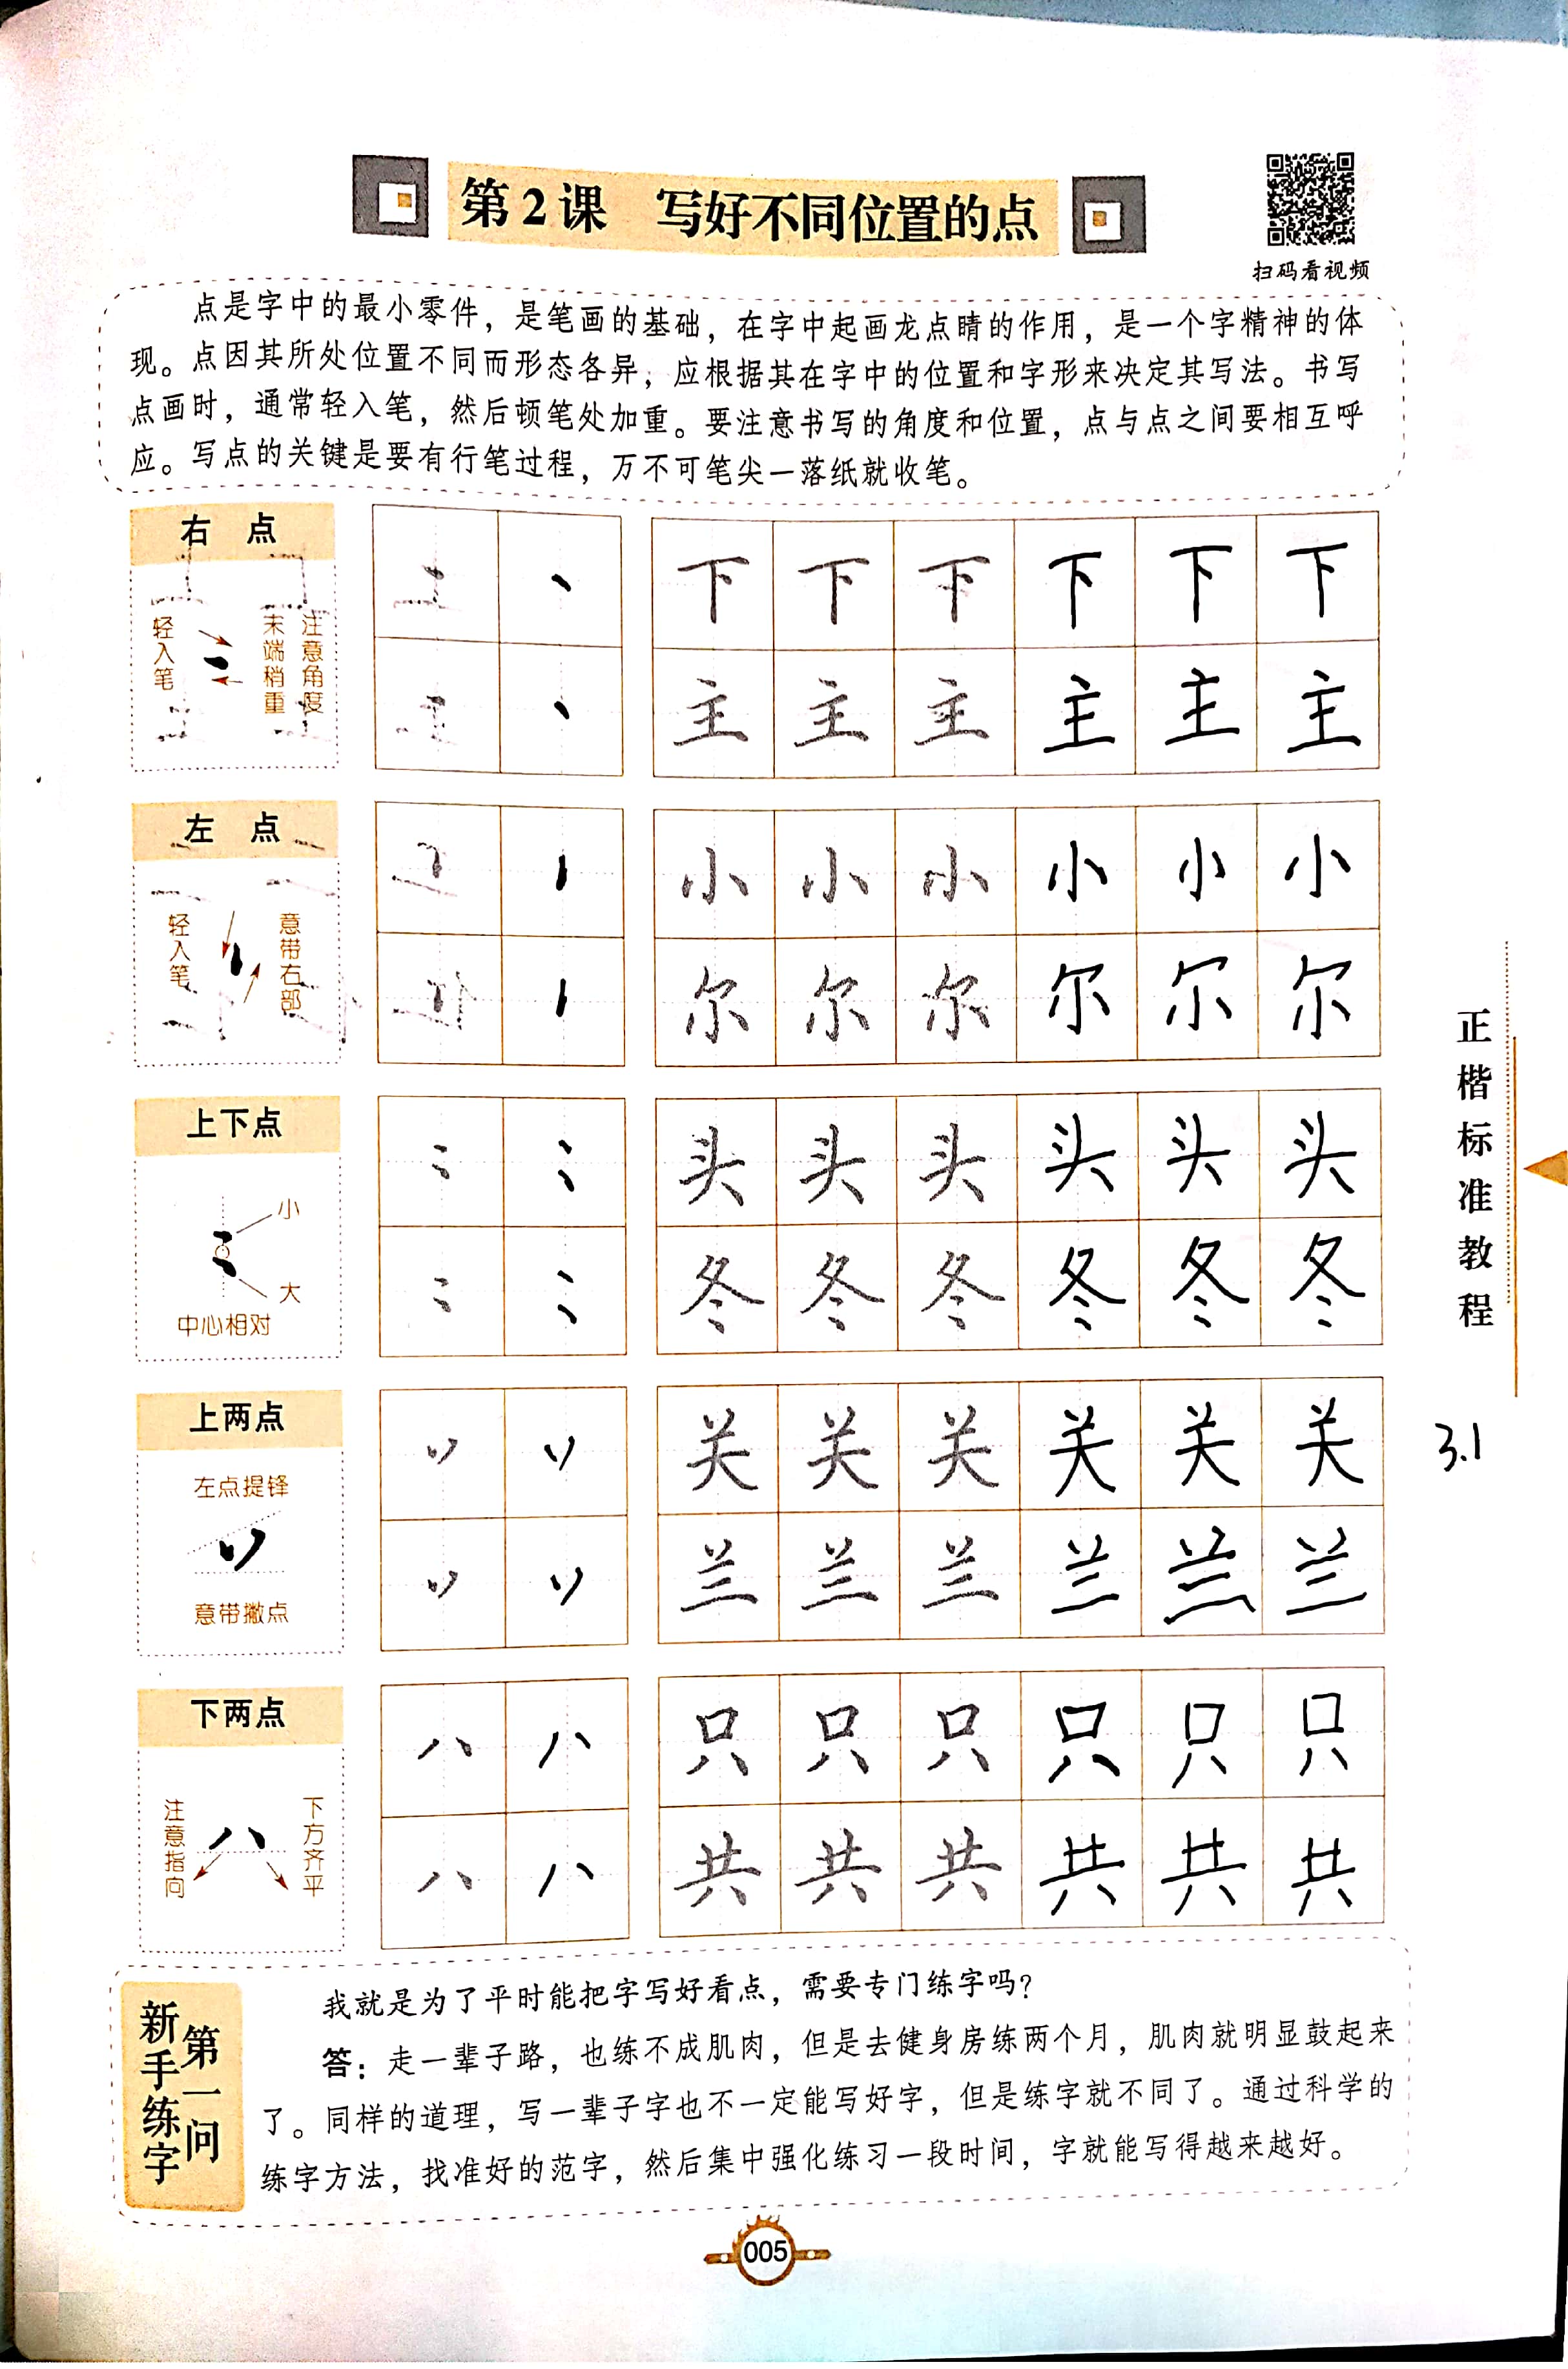 第2课 写好不同位置的点
扫码看视频
点是字中的最小零件，是笔画的基础，在字中起画龙点睛的作用，是一个字精神的体
现。点因其所处位置不同而形态各异，应根据其在字中的位置和字形来决定其写法。书写
点画时，通常轻入笔，然后顿笔处加重。要注意书写的角度和位置，点与点之间要相互呼
应。写点的关键是要有行笔过程，万不可笔尖一落纸就收笔。
右 点
轻入笔
末端稍重
注意角度
下 下 下 下 下 下
主 主 主 主 主 主
左 点
轻入笔
意带右部
小 小 小 小 小 小
尔 尔 尔 尔 尔 尔
上下点
小
大
中心相对
头 头 头 头 头 头
冬 冬 冬 冬 冬 冬
上两点
左点提锋
意带撇点
关 关 关 关 关 关
兰 兰 兰 兰 兰 兰
下两点
注意指向
下方齐平
只 只 只 只 只 只
共 共 共 共 共 共
正楷标准教程
3.1
新手练字
第一问
我就是为了平时能把字写好看点，需要专门练字吗？
答：走一辈子路，也练不成肌肉，但是去健身房练两个月，肌肉就明显鼓起来
了。同样的道理，写一辈子字也不一定能写好字，但是练字就不同了。通过科学的
练字方法，找准好的范字，然后集中强化练习一段时间，字就能写得越来越好。
005